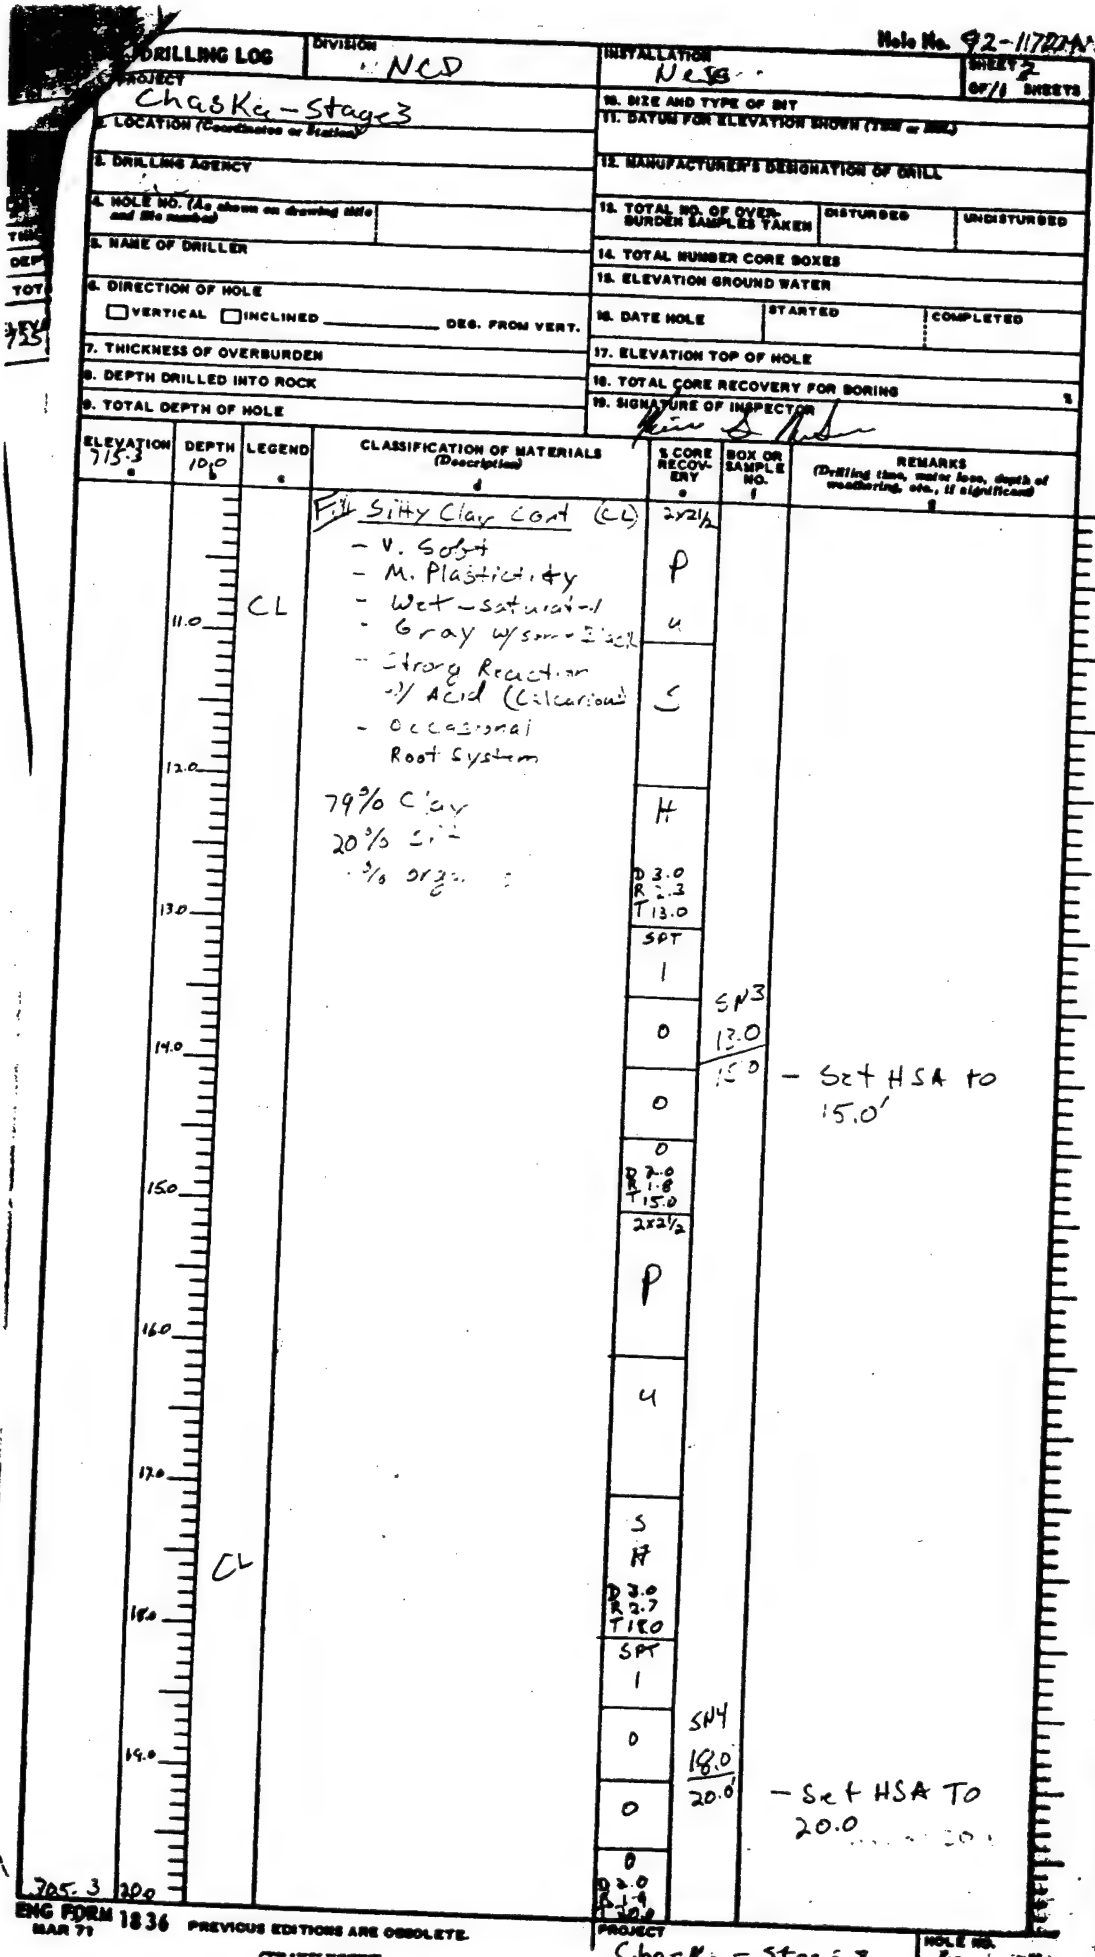 Hole No. 92-117
DRILLING LOG
DIVISION
NCD
INSTALLATION
SHEET 2
OF 11 SHEETS
PROJECT
Chaska-Stage 3
10. SIZE AND TYPE OF BIT
2. LOCATION (Coordinates or Station)
11. DATUM FOR ELEVATION SHOWN (TBM or MSL)
3. DRILLING AGENCY
12. MANUFACTURER'S DESIGNATION OF DRILL
4. HOLE NO. (As shown on drawing title
and file number)
13. TOTAL NO. OF OVER-
BURDEN SAMPLES TAKEN
DISTURBED
UNDISTURBED
5. NAME OF DRILLER
14. TOTAL NUMBER CORE BOXES
15. ELEVATION GROUND WATER
6. DIRECTION OF HOLE
VERTICAL INCLINED DEG. FROM VERT.
16. DATE HOLE
STARTED
COMPLETED
7. THICKNESS OF OVERBURDEN
17. ELEVATION TOP OF HOLE
8. DEPTH DRILLED INTO ROCK
18. TOTAL CORE RECOVERY FOR BORING %
9. TOTAL DEPTH OF HOLE
19. SIGNATURE OF INSPECTOR
ELEVATION
715.3
a
DEPTH
10.0
b
LEGEND
c
CLASSIFICATION OF MATERIALS
(Description)
d
% CORE
RECOV-
ERY
e
BOX OR
SAMPLE
NO.
f
REMARKS
(Drilling time, water loss, depth of
weathering, etc., if significant)
g
Fill Silty Clay Cont (CL)
2x2 1/2
- V. Soft
- M. Plasticity
P
CL
- Wet-saturated
11.0
- Gray w/some Black
u
- Strong Reaction
w/ Acid (Calcarious)
S
- Occasional
Root System
12.0
79% Clay
H
20% Silt
% orga
D 3.0
R 2.3
T 13.0
13.0
SPT
1
SN3
13.0
15.0
0
14.0
- Set HSA to
15.0'
0
0
D 2.0
R 1.8
T 15.0
15.0
2x2 1/2
P
16.0
u
17.0
S
H
CL
D 3.0
R 2.7
T 18.0
18.0
SPT
1
SN4
18.0
20.0'
0
19.0
- Set HSA TO
20.0
0
0
D 2.0
R 1.9
T 20.0
705.3
20.0
ENG FORM 1836
MAR 71
PREVIOUS EDITIONS ARE OBSOLETE.
PROJECT
Chaska - Stage 3
HOLE NO.